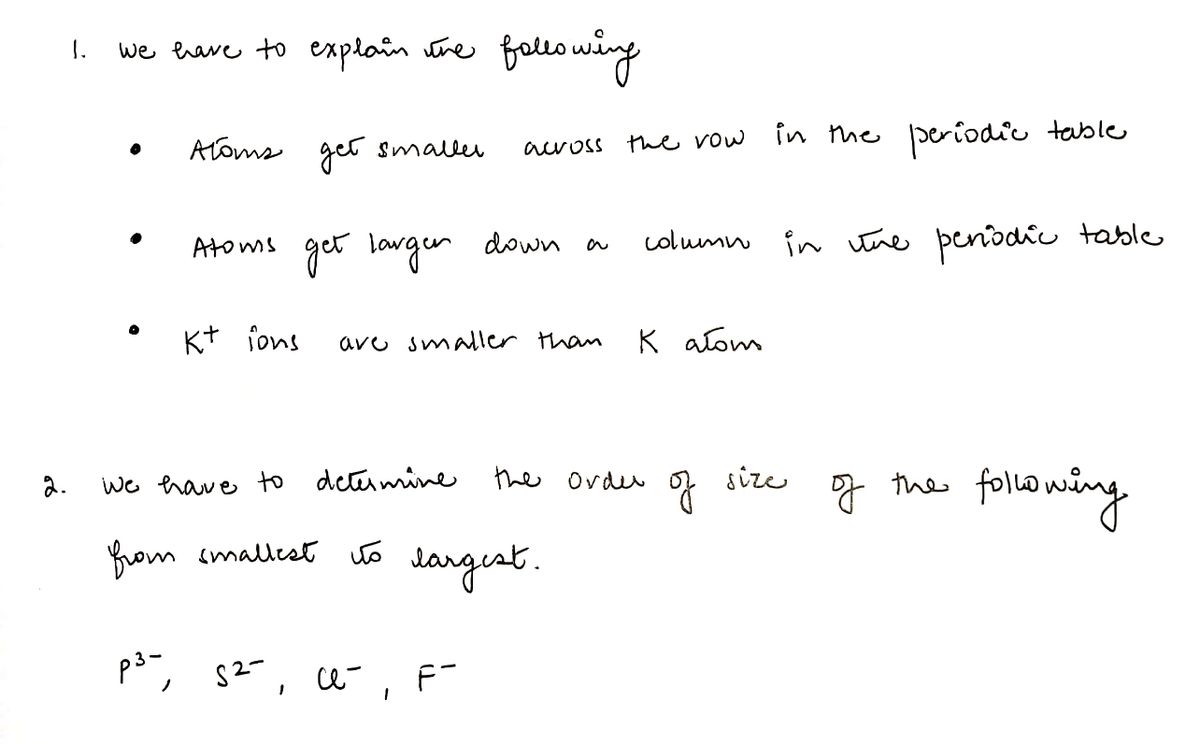 1. We have to explain the following
• Atoms get smaller across the row in the periodic table
• Atoms get larger down a column in the periodic table
• K+ ions are smaller than K atom
2. We have to determine the order of size of the following
from smallest to largest.
P3-, S2-, Cl-, F-